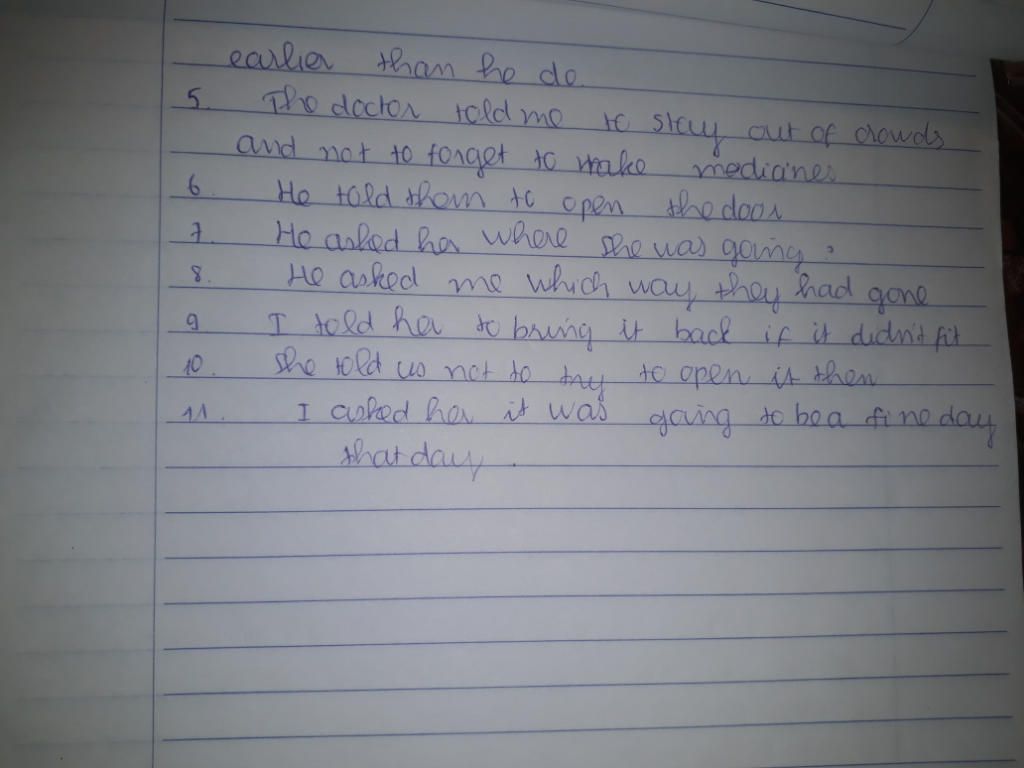 earlier than he do.
5. The doctor told me to stay out of crowds
and not to forget to make medicines
6. He told them to open the door
7. He asked her where she was going?
8. He asked me which way they had gone
9 I told her to bring it back if it didn't fit
10. She told us not to try to open it then
11. I asked her it was going to be a fine day
that day.